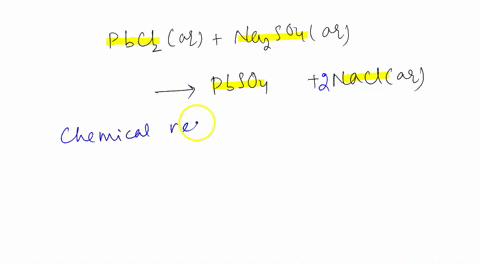 PbCl₂ (aq) + Na₂SO₄ (aq)
⟶ PbSO₄ + 2NaCl (aq)
Chemical re